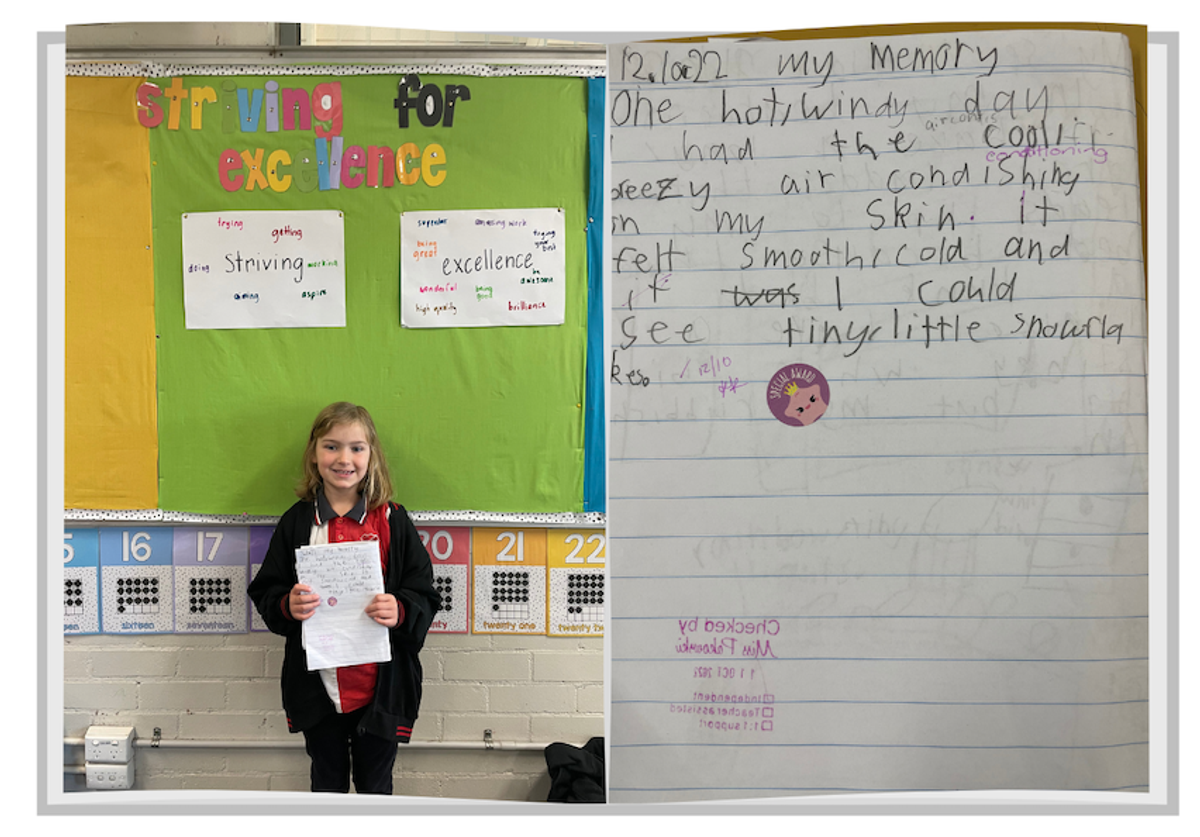 striving for
excellence
trying
getting
doing
striving
working
aiming
aspire
superstar
amazing work
being
great
trying
your
best
excellence
be
awesome
wonderful
being
good
high quality
brilliance
16
17
20
21
22
sixteen
seventeen
twenty one
12.10.22 my memory
One hot, windy day
I had the cool
conditioning
breezy air condishing
on my skin. It
felt smooth, cold and
it was I could
see tiny, little snowfla
kes.
12/10
SPECIAL AWARD
Checked by
Miss Pakowski
11 OCT 202
Independent
Teacher assisted
1:1 support